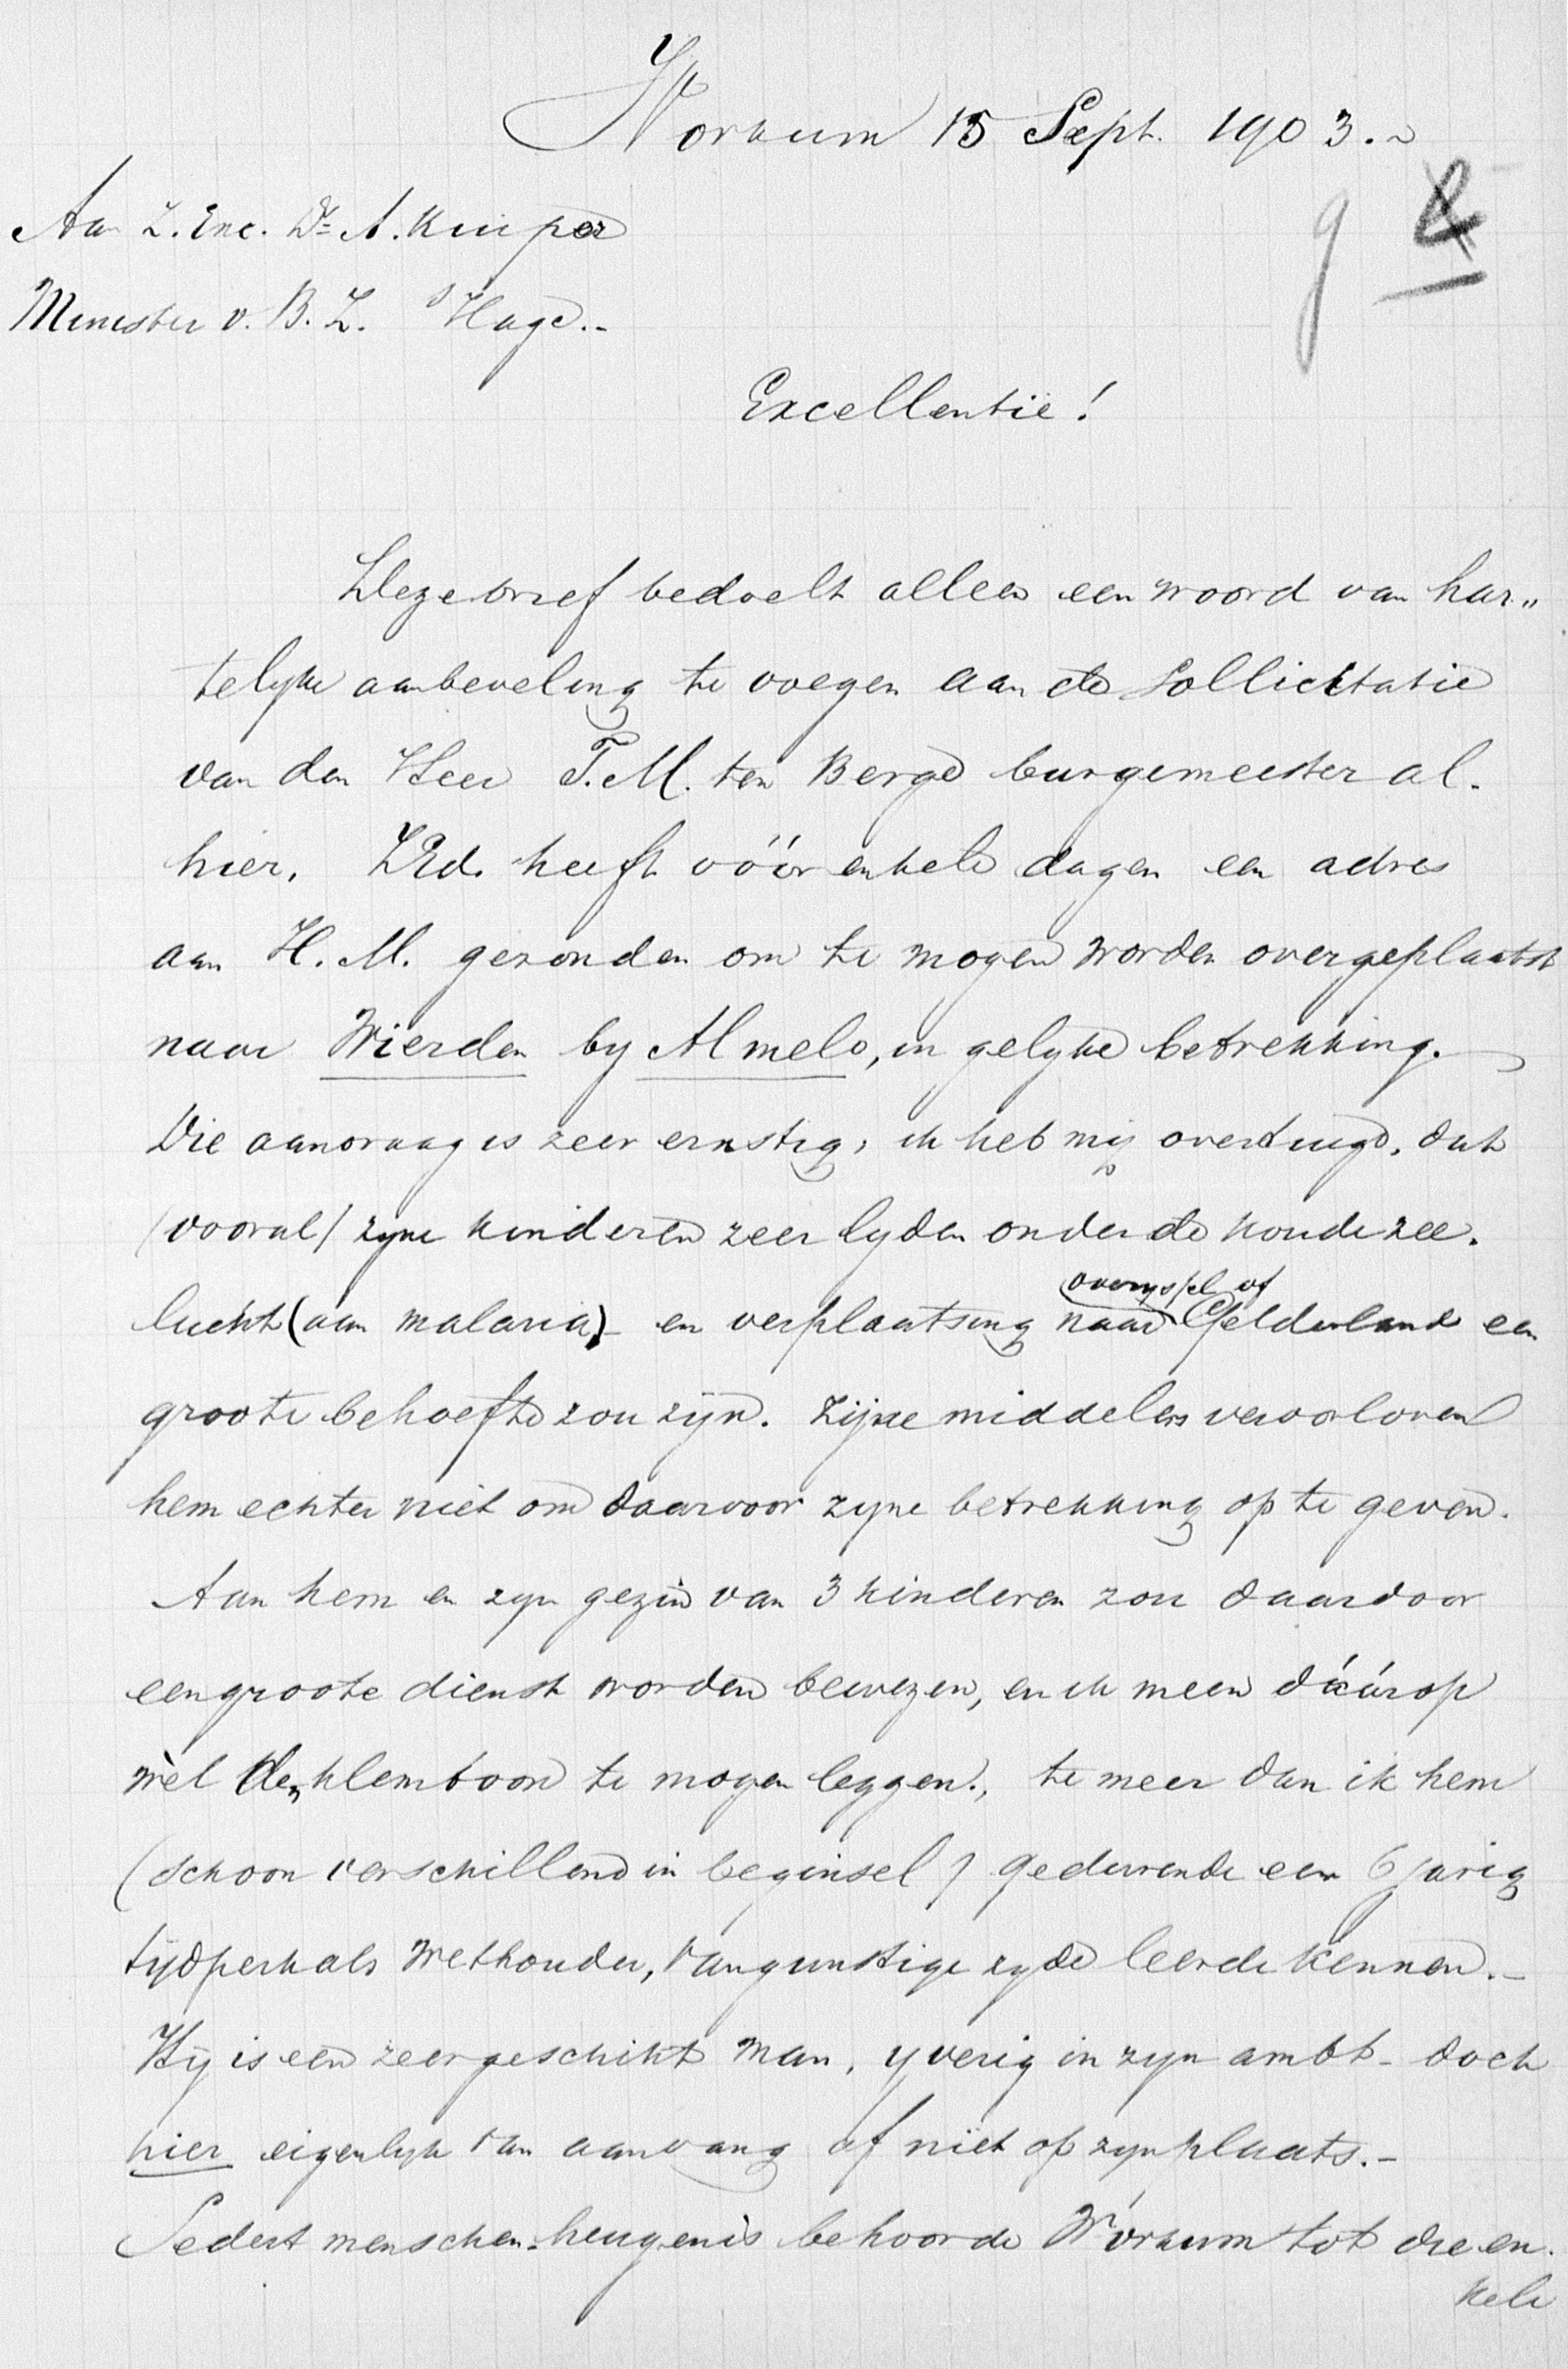 Workum 15 Sept. 1903.
Aan Z. Exc. Dr A. Kuiper
Minister v. B. Z. 's Hage.-
Excellentie!
Deze brief bedoelt alleen een woord van har„
telyke aanbeveling te voegen aan de sollicitatie
van den Heer T. M. ten Berge burgemeester al-
hier. ZEd. heeft vóór enkele dagen een adres
aan H. M. gezonden om te mogen worden overgeplaatst
naar Wierden by Almelo, in gelyke betrekking.
Die aanvraag is zeer ernstig, ik heb mij overtuigd, dat
(vooral) zyne kinderen zeer lyden onder de koude zee-
lucht (aan malaria) - en verplaatsing naar overyssel of Gelderland een
groote behoefte zou zijn. Zijne middelen veroorloven
hem echter niet om daarvoor zyne betrekking op te geven.
Aan hem en zyn gezin van 3 kinderen zou daardoor
een groote dienst worden bewezen, en ik meen dáárop
wèl den klemtoon te mogen leggen., te meer dan ik hem
(schoon verschillend in beginsel) gedurende een 6 jarig
tijdperk als wethouder, van gunstige zyde leerde kennen.-
Hij is een zeer geschikt man, yverig in zyn ambt - doch
hier eigenlyk van aanvang af niet op zyn plaats.-
Sedert menschen-heugenis behoorde Workum tot die en-
kele